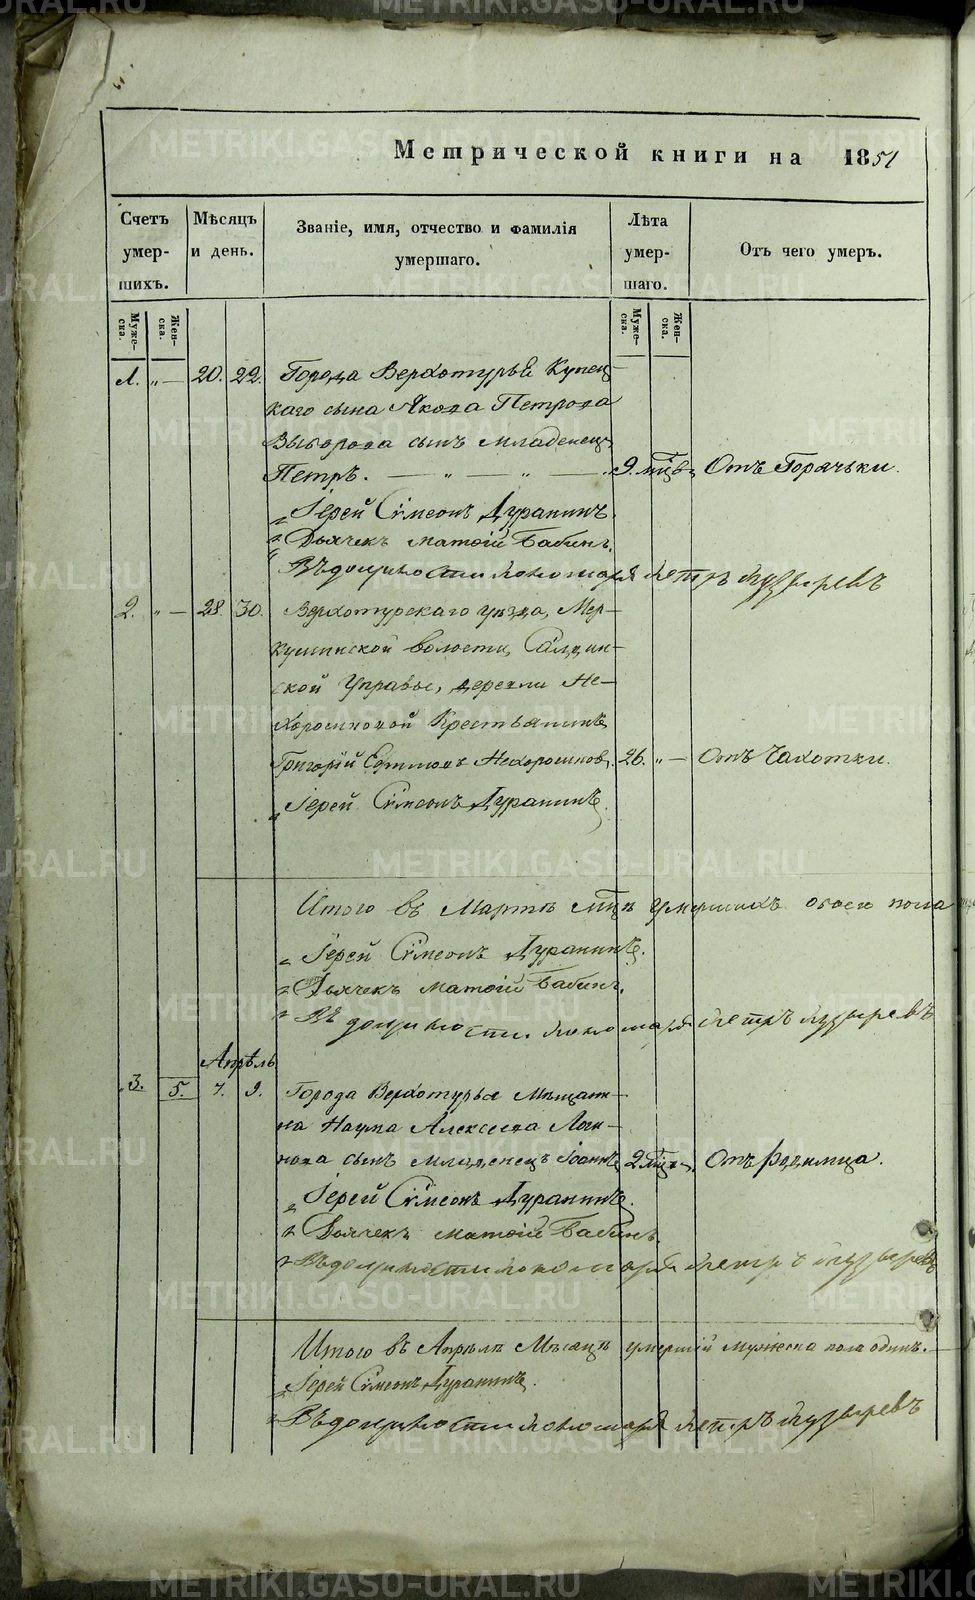 Метрической книги на 1851
Счетъ умер-шихъ.
Мѣсяцъ и день.
Званіе, имя, отчество и фамилія умершаго.
Лѣта умер-шаго.
Отъ чего умеръ.
Муже-ска.
Жен-ска.
Муже-ска.
Жен-ска.
1. „ — 20. 22. Города Верхотурья Купец-
каго сына Якова Петрова
Выборова сынъ младенец
Петръ. — „ — „ — 9. мцвъ Отъ Горячьки.
Іерей Сѵмеонъ Дурапинъ.
Дьячекъ Матѳій Бабинъ.
Въ должности пономаря Петръ Пузыревъ
2. „ — 28. 30. Верхотурскаго уѣзда, Мер-
кушинской волости, Салдин-
ской Управы, деревни Не-
хорошковой Крестьянинъ
Григорій Нехорошков. 26. „ — Отъ Чахотки.
Іерей Сѵмеонъ Дурапинъ.
Итого въ Мартѣ мцѣ умершихъ обоего пола
Іерей Сѵмеонъ Дурапинъ.
Дьячекъ Матѳій Бабинъ.
Въ должности пономаря Петръ Пузыревъ
Апрѣль
3. 5. 7. 9. Города Верхотурья Мѣщани-
на Наума Алексѣева Логи-
нова сынъ младенецъ Іоаннъ 2 мцъ. Отъ Родимца.
Іерей Сѵмеонъ Дурапинъ.
Дьячекъ Матѳій Бабинъ.
Въ должности пономаря Петръ Пузыревъ
Итого въ Апрѣлѣ Мѣсяцѣ умершій мужеска пола одинъ.
Іерей Сѵмеонъ Дурапинъ.
Въ должности пономаря Петръ Пузыревъ
METRIKI.GASO-URAL.RU